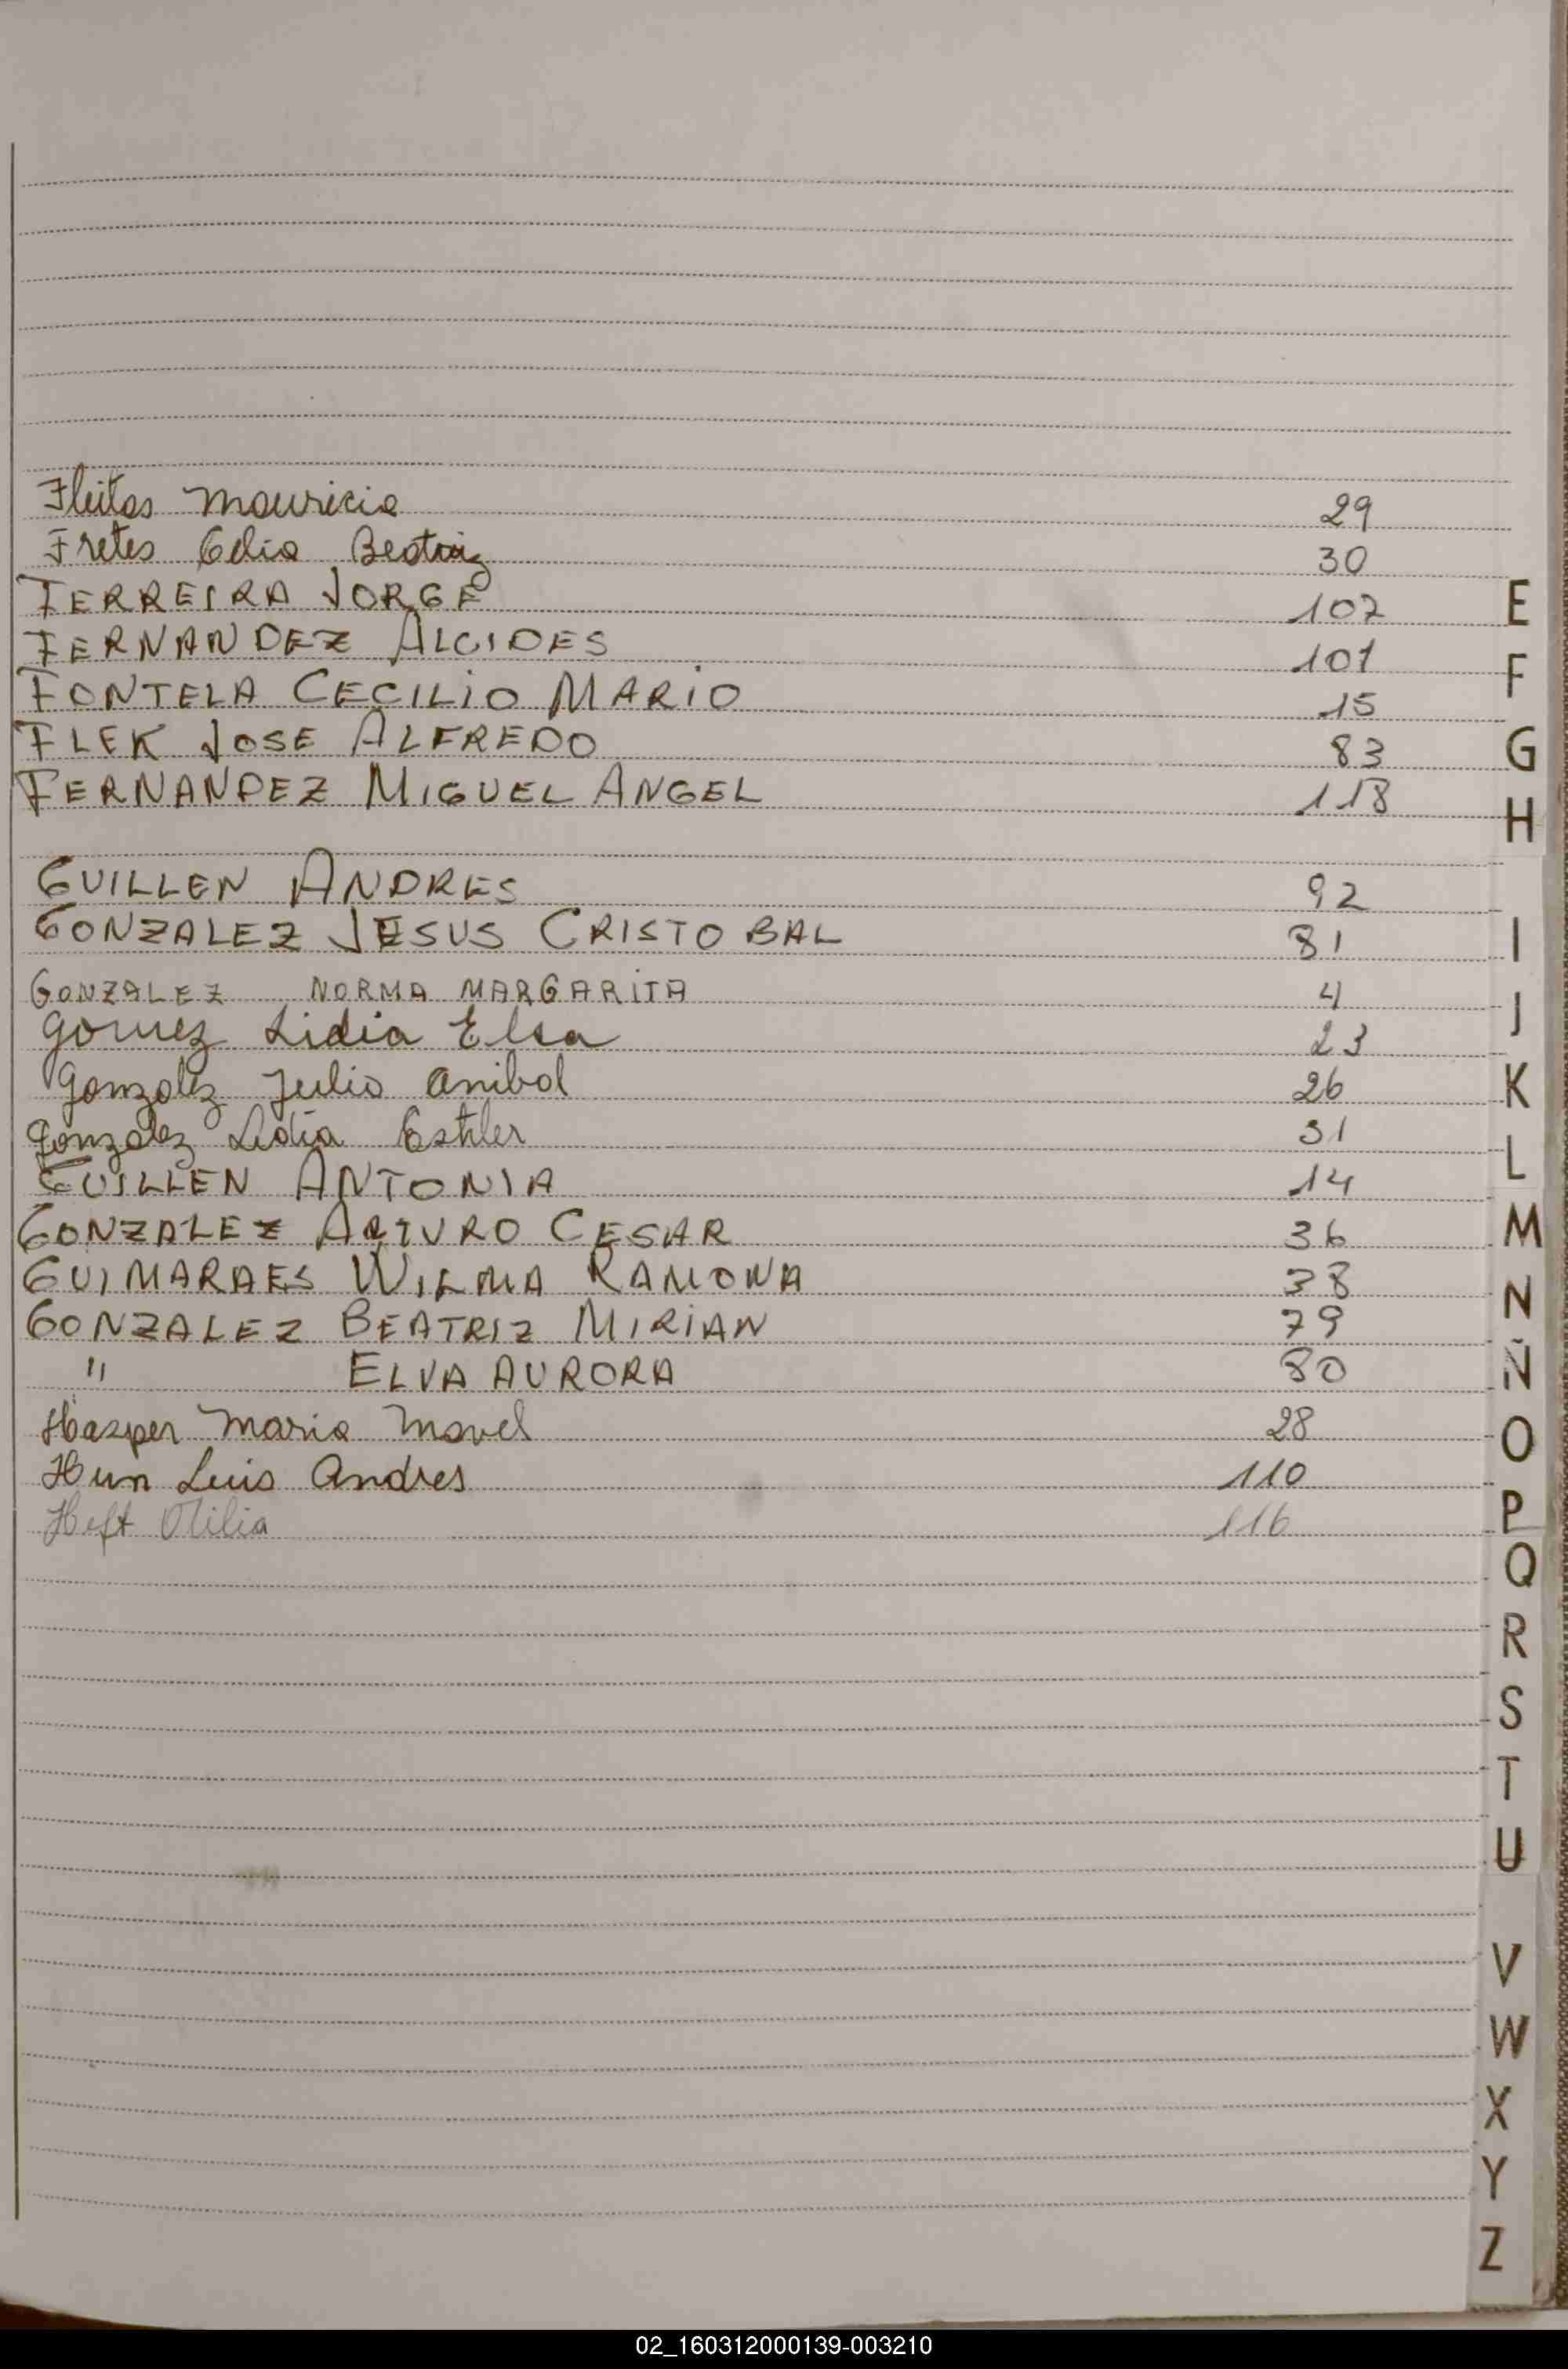 Fleitas Mauricio 29
Fretes Celia Beatriz 30
FERREIRA JORGE 107
FERNANDEZ ALCIDES 101
FONTELA CECILIO MARIO 15
FLEK JOSE ALFREDO 83
FERNANDEZ MIGUEL ANGEL 118
GUILLEN ANDRES 92
GONZALEZ JESUS CRISTOBAL 81
GONZALEZ NORMA MARGARITA 4
Gomez Lidia Elsa 23
Gonzalez Julio Anibal 26
Gonzalez Lidia Esther 31
GUILLEN ANTONIA 14
GONZALEZ ARTURO CESAR 36
GUIMARAES WILMA RAMONA 38
GONZALEZ BEATRIZ MIRIAN 79
" ELVA AURORA 80
Hasper Maria 28
Hun Luis Andres 110
Heft Otilia 116
E
F
G
H
I
J
K
L
M
N
Ñ
O
P
Q
R
S
T
U
V
W
X
Y
Z
02_160312000139-003210